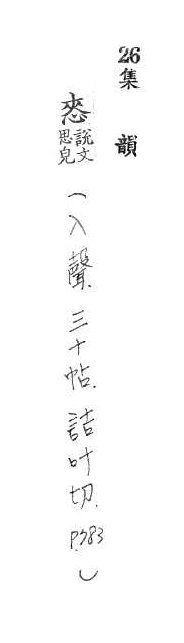 26集韻
㤲說文思皃(入聲.三十帖.詰叶切.P.783)